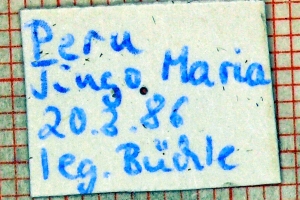 Peru
Tingo Maria
20.8.86
leg. Büchle